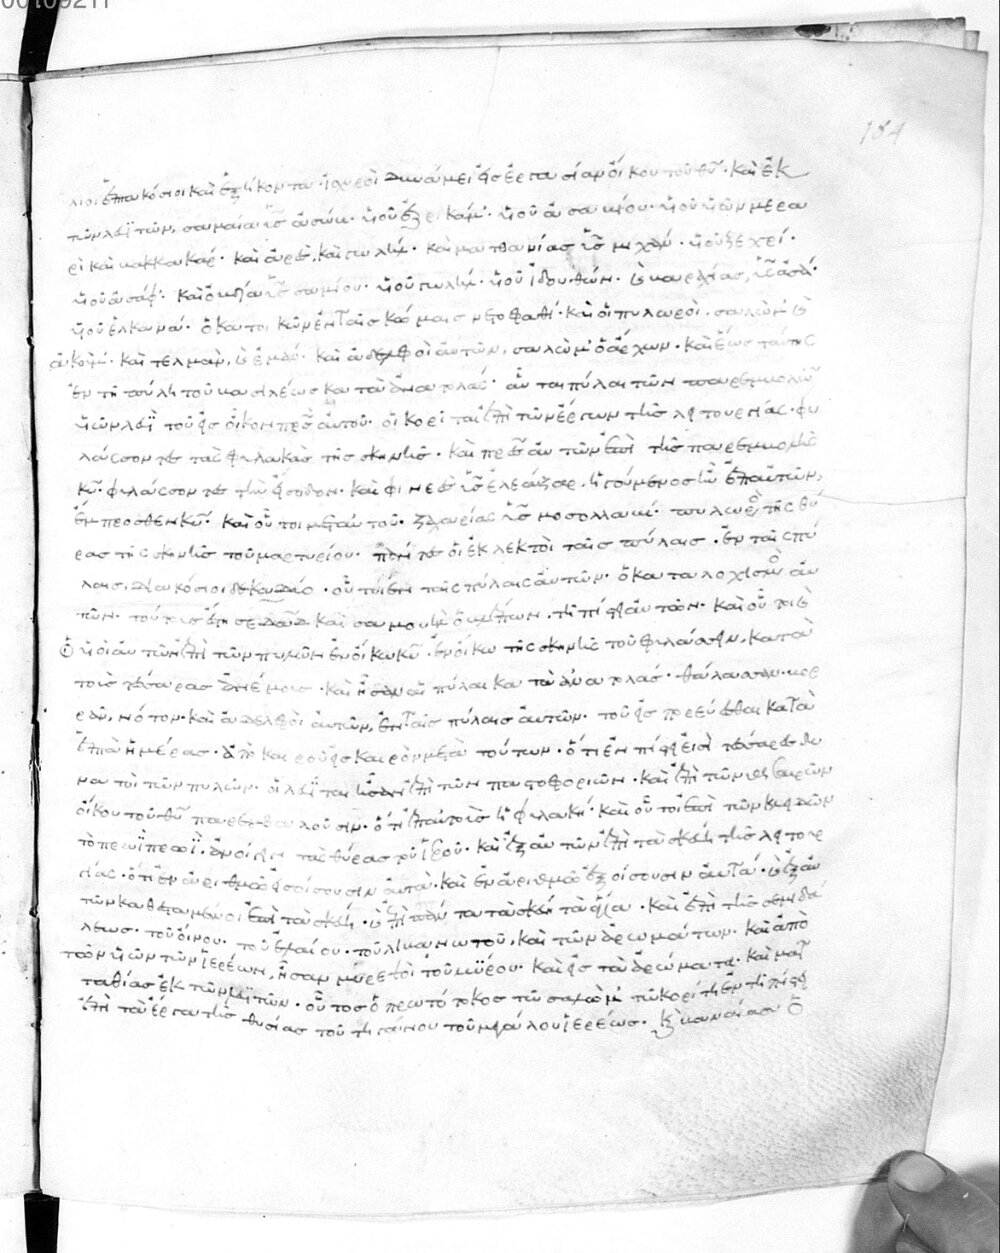 00109211
184
λιοι ἑπτακόσιοι καὶ ἑξήκοντα· ἰσχυροὶ δυνάμει εἰς ἐργασίαν οἴκου τοῦ θυ· καὶ ἐκ
τῶν λευϊτῶν, σαμαία υἱὸς ἀσώκ· υἱοῦ ἐζρικάμ· υἱοῦ ἀσαβίου· υἱοῦ υἱῶν μερα
ρὶ καὶ βακβακάρ· καὶ ἀρὲς, καὶ γωλήλ· καὶ ματθανίας υἱὸς μιχαὰ· υἱοῦ ζεχρί·
υἱοῦ ἀσάφ· καὶ ὀβδία υἱὸς σαμίου· υἱοῦ γωλήλ· υἱοῦ ἰδουθών· καὶ βαραχίας, υἱὸς ἀσὰ·
υἱοῦ ἐλκανά· ὁ κατοικῶν ἐν ταῖς κώμαις νετοφαθί· καὶ οἱ πυλωροί· σαλὼμ καὶ
ἀκούμ· καὶ τελμὰν, καὶ ἐμάν· καὶ ἀδελφοὶ αὐτῶν, σαλὼμ ὁ ἄρχων· καὶ ἕως ταύτης
ἐν τῇ πύλῃ τοῦ βασιλέως κατὰ ἀνατολάς· αὗται πύλαι τῶν παρεμβολῶν
υἱῶν λευΐ
λάσσοντες τὰς φυλακὰς τῆς σκηνῆς· καὶ πρες αὐτῶν ἐπὶ τῆς παρεμβολῆς
κυ· φυλάσσοντες τὴν εἴσοδον· καὶ φινεὲς υἱὸς ἐλεάζαρ, ἡγούμενος ἦν ἐπ αὐτῶν,
ἔμπροσθεν κυ· καὶ οὗτοι μετ αὐτοῦ· ζαχαρίας υἱὸς μοσολλαμί· πυλωρὸς τῆς θύ
ρας τῆς σκηνῆς τοῦ μαρτυρίου· πάντες οἱ ἐκλεκτοὶ ταῖς πύλαις· ἐν ταῖς πύ
λαις, διακόσιοι δεκαδύο· οὗτοι ἐν ταῖς πύλαις αὐτῶν· ὁ καταλοχισμὸς αὐ
τῶν· τούτους ἔστησε δαδ καὶ σαμουὴλ ὁ βλέπων, τῇ πίστει αὐτῶν· καὶ οὗτοι καὶ
οἱ υἱοὶ αὐτῶν ἐπὶ τῶν πυλῶν ἐν οἴκω κυ· ἐν οἴκω τῆς σκηνῆς τοῦ φυλάσσειν, κατὰ
τοὺς τέσσαρας ἀνέμους· καὶ ἦσαν αἱ πύλαι κατὰ ἀνατολάς· θάλασσαν· βορ
ρᾶν, νότον· καὶ ἀδελφοὶ αὐτῶν, ἐν ταῖς πύλαις αὐτῶν· τοῦ εἰσπορεύεσθαι κατὰ
ἑπτὰ ἡμέρας· ἀπὸ καιροῦ εἰς καιρὸν μετὰ τούτων· ὅτι ἐν πίστει εἰσὶ τέσσαρες δυ
νατοὶ τῶν πυλῶν· οἱ λευῖται ἦσαν ἐπὶ τῶν παστοφοριῶν· καὶ ἐπὶ τῶν θησαυρῶν
οἴκου τοῦ θυ παρεμβαλοῦσιν· ὅτι ἐπ αὐτοὺς ἡ φυλακή· καὶ οὗτοι ἐπὶ τῶν κλειδῶν
τὸ πρωῒ πρωΐ, ἀνοίγειν τὰς θύρας τοῦ ἱεροῦ· καὶ ἐξ αὐτῶν ἐπὶ τὰ σκεύη τῆς λειτουρ
γίας· ὅτι ἐν ἀριθμῶ εἰσοίσουσιν αὐτὰ· καὶ ἐν ἀριθμῶ ἐξοίσουσιν αὐτά· καὶ ἐξ αὐ
τῶν καθεσταμένοι ἐπὶ τὰ σκεύη· καὶ ἐπὶ πάντα τὰ σκεύη τὰ ἅγια· καὶ ἐπὶ τῆς σεμιδά
λεως· τοῦ οἴνου· τοῦ ἐλαίου· τοῦ λιβανωτοῦ, καὶ τῶν ἀρωμάτων· καὶ ἀπὸ
τῶν υἱῶν τῶν ἱερέων, ἦσαν μυρεψοὶ τοῦ μύρου· καὶ εἰς τὰ ἀρώματα· καὶ ματ
ταθίας ἐκ τῶν λευϊτῶν· οὗτος ὁ πρωτότοκος τῶ σαλὼμ τῶ κορίτῃ ἐν τῇ πίστει
ἐπὶ τὰ ἔργα τῆς θυσίας τοῦ τηγάνου τοῦ μεγάλου ἱερέως· καὶ βαναίας ὁ